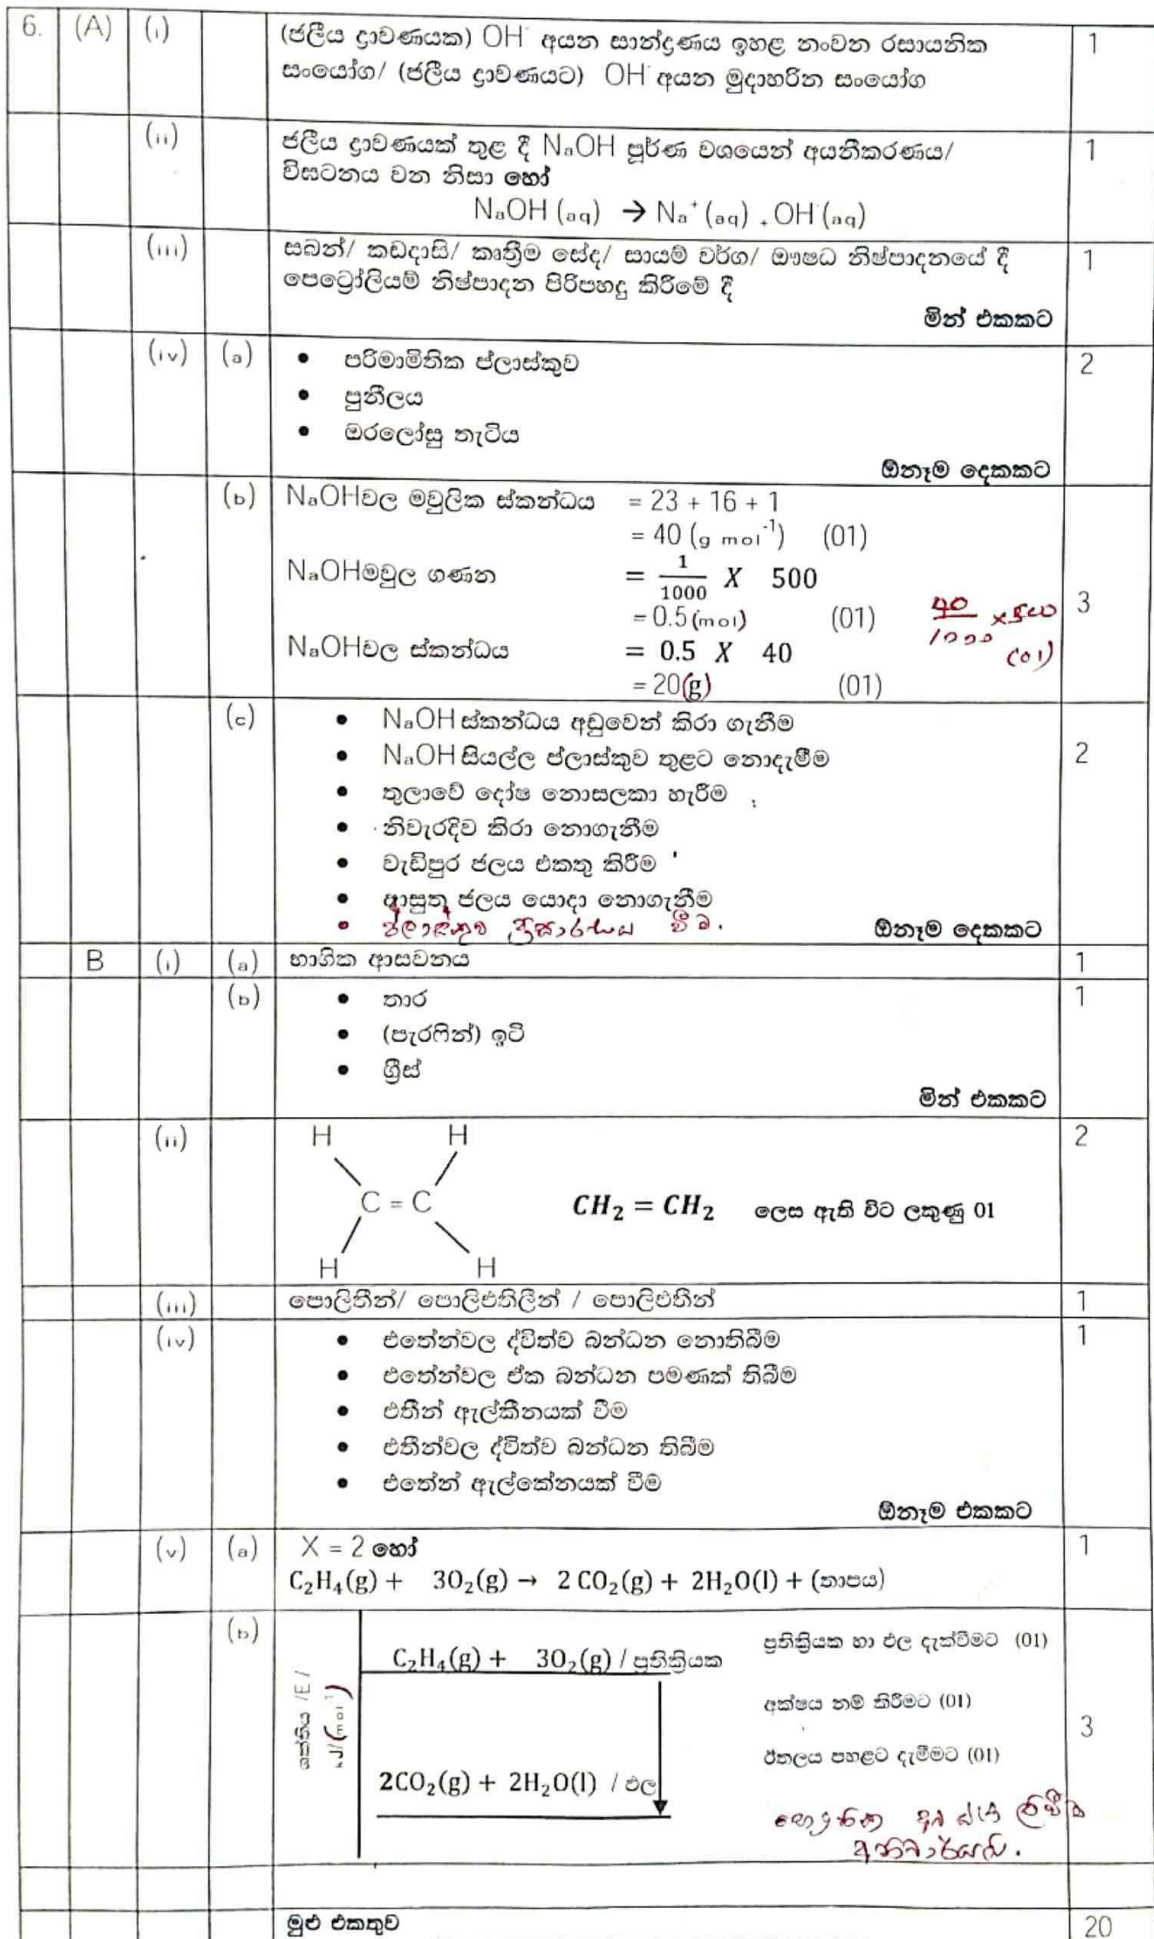 6. (A) (i) (ජලීය ද්‍රාවණයක) OH⁻ අයන සාන්ද්‍රණය ඉහළ නංවන රසායනික 1
සංයෝග/ (ජලීය ද්‍රාවණයට) OH⁻ අයන මුදාහරින සංයෝග
(ii) ජලීය ද්‍රාවණයක් තුළ දී NaOH පූර්ණ වශයෙන් අයනීකරණය/ 1
විඝටනය වන නිසා හෝ
NaOH (aq) → Na⁺ (aq) + OH⁻(aq)
(iii) සබන්/ කඩදාසි/ කෘත්‍රීම සේද/ සායම් වර්ග/ ඖෂධ නිෂ්පාදනයේ දී 1
පෙට්‍රෝලියම් නිෂ්පාදන පිරිපහදු කිරීමේ දී
මින් එකකට
(iv) (a) • පරිමාමිතික ප්ලාස්කුව 2
• පුනීලය
• ඔරලෝසු තැටිය
ඕනෑම දෙකකට
(b) NaOHවල මවුලික ස්කන්ධය = 23 + 16 + 1
= 40 (g mol⁻¹) (01)
NaOHමවුල ගණන = 1/1000 X 500
= 0.5(mol) (01) 40/1000 ×500 3
NaOHවල ස්කන්ධය = 0.5 X 40 (01)
= 20(g) (01)
(c) • NaOH ස්කන්ධය අඩුවෙන් කිරා ගැනීම
• NaOH සියල්ල ප්ලාස්කුව තුළට නොදැමීම 2
• තුලාවේ දෝෂ නොසලකා හැරීම
• නිවැරදිව කිරා නොගැනීම
• වැඩිපුර ජලය එකතු කිරීම
• ආසුත ජලය යොදා නොගැනීම
• ප්ලාස්කුව වීම. ඕනෑම දෙකකට
B (i) (a) භාගික ආසවනය 1
(b) • තාර 1
• (පැරෆින්) ඉටි
• ග්‍රීස්
මින් එකකට
(ii) H H 2
C = C CH₂ = CH₂ ලෙස ඇති විට ලකුණු 01
H H
(iii) පොලිතීන්/ පොලිඑතිලීන් / පොලිඑතීන් 1
(iv) • එතේන්වල ද්විත්ව බන්ධන නොතිබීම 1
• එතේන්වල ඒක බන්ධන පමණක් තිබීම
• එතීන් ඇල්කීනයක් වීම
• එතීන්වල ද්විත්ව බන්ධන තිබීම
• එතේන් ඇල්කේනයක් වීම
ඕනෑම එකකට
(v) (a) X = 2 හෝ 1
C₂H₄(g) + 3O₂(g) → 2 CO₂(g) + 2H₂O(l) + (තාපය)
(b) ශක්තිය /E / kJ/(mol⁻¹)
C₂H₄(g) + 3O₂(g) / ප්‍රතික්‍රියක ප්‍රතික්‍රියක හා ඵල දැක්වීමට (01)
අක්ෂය නම් කිරීමට (01)
3
ඊතලය පහළට දැමීමට (01)
2CO₂(g) + 2H₂O(l) / ඵල
භෞතික අවස්ථා ලිවීම
අනිවාර්යයි.
මුළු එකතුව 20